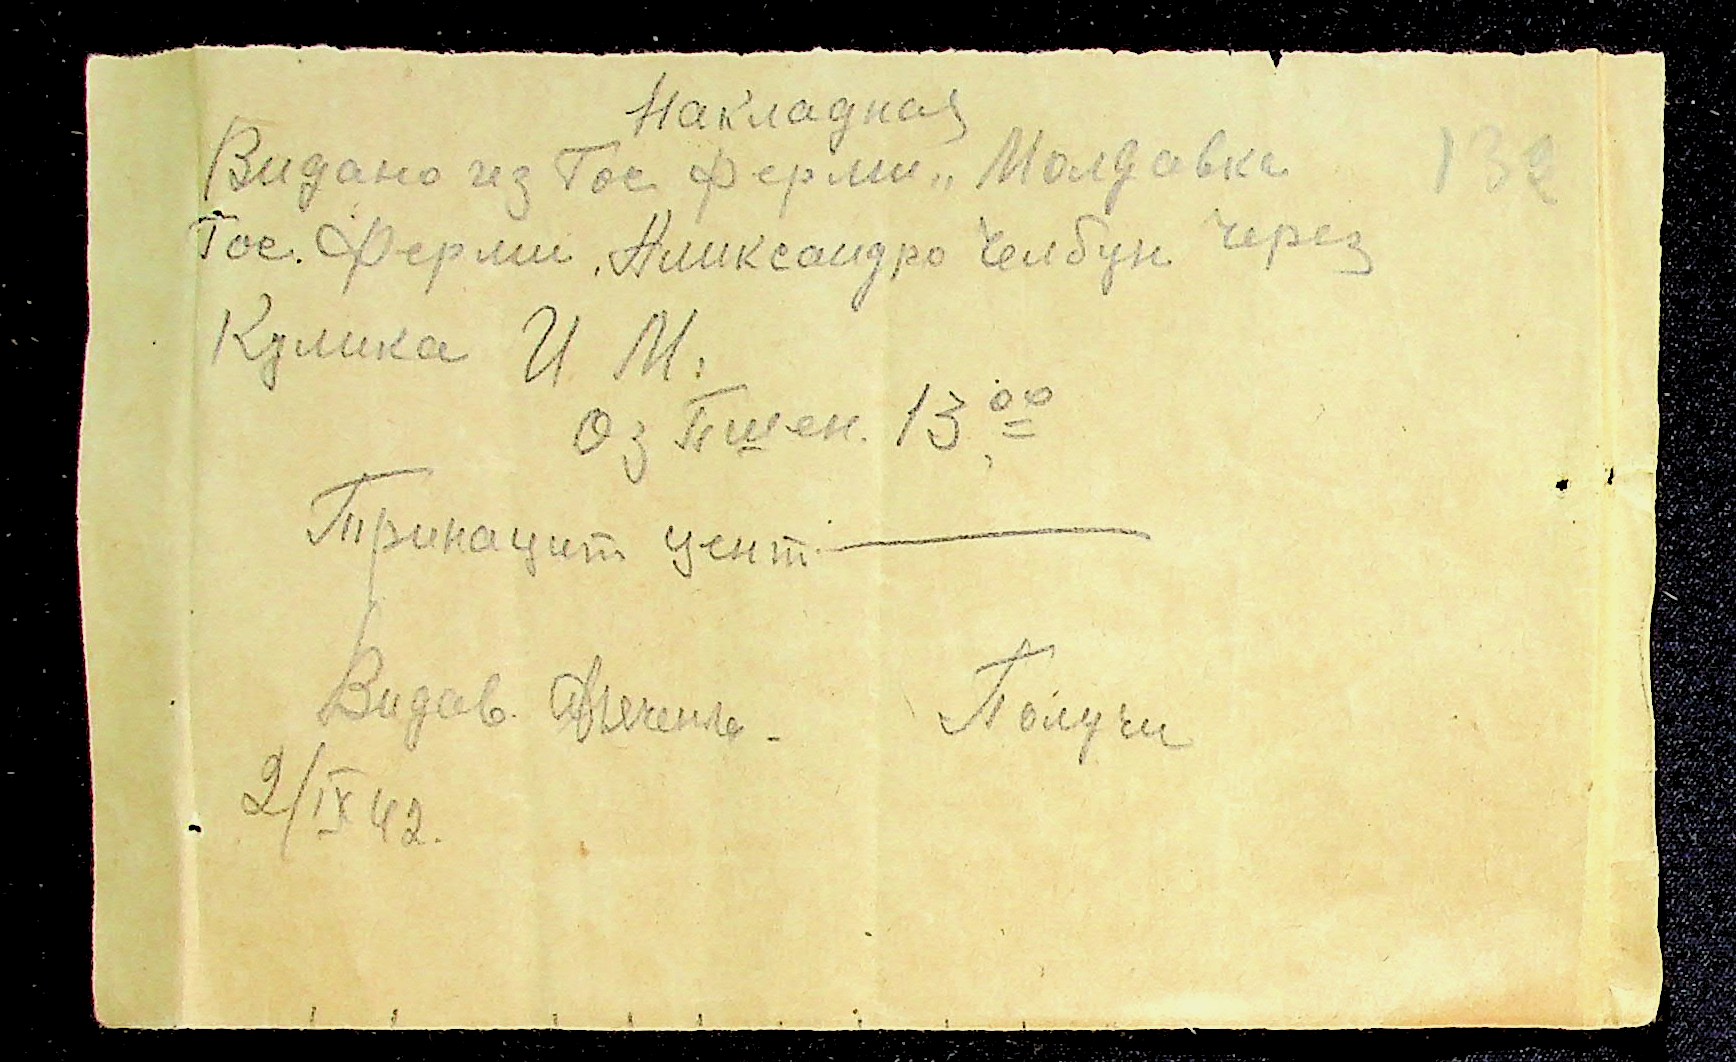 Накладная
Видано из Гос. Ферми „ Молдавка 132
Гос. Ферми. Аликсандро Челбун через
Кулика И М.
Оз Пшен. 13 00
Тринацит цент
Видав. Получи
2/IX 42.